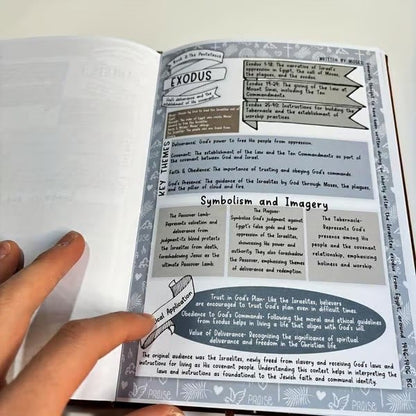 Book 2: The Pentateuch
WRITTEN BY MOSES
EXODUS
God's deliverance and the
establishment of His covenant.
Exodus 1-18: The narrative of Israel's
oppression in Egypt, the call of Moses,
the plagues, and the exodus.
Exodus 19-24: The giving of the Law at
Mount Sinai, including the Ten
Commandments.
Exodus 25-40: Instructions for building the
Tabernacle and the establishment of
worship practices.
KEY THEMES
Deliverance: God's power to free His people from oppression.
Covenant: The establishment of the Law and the Ten Commandments as part of
the covenant between God and Israel.
Faith & Obedience: The importance of trusting and obeying God's commands.
God's Presence: The guidance of the Israelites by God through Moses, the plagues,
and the pillar of cloud and fire.
Symbolism and Imagery
The Passover Lamb-
Represents salvation and
deliverance from
judgment-its blood protects
the Israelites from death,
foreshadowing Jesus as the
ultimate Passover Lamb.
The Plagues-
Symbolize God's judgment against
Egypt's false gods and their
oppression of the Israelites,
showcasing His power and
authority. They also foreshadow
the Passover, emphasizing themes
of deliverance and redemption.
The Tabernacle-
Represents God's
presence among His
people and the covenant
relationship, emphasizing
holiness and worship.
Application
Trust in God's Plan- Like the Israelites, believers
are encouraged to trust God's plan even in difficult times.
Obedience to God's Commands- Following the moral and ethical guidelines
from Exodus helps in living a life that aligns with God's will.
Value of Deliverance- Recognizing the significance of spiritual
deliverance and freedom in the Christian life.
The original audience was the Israelites, newly freed from slavery and receiving God's laws and
instructions for living as His covenant people. Understanding this context helps in interpreting the
laws and instructions as foundational to the Jewish faith and communal identity.
PRAISE
PRAISE
PRAISE